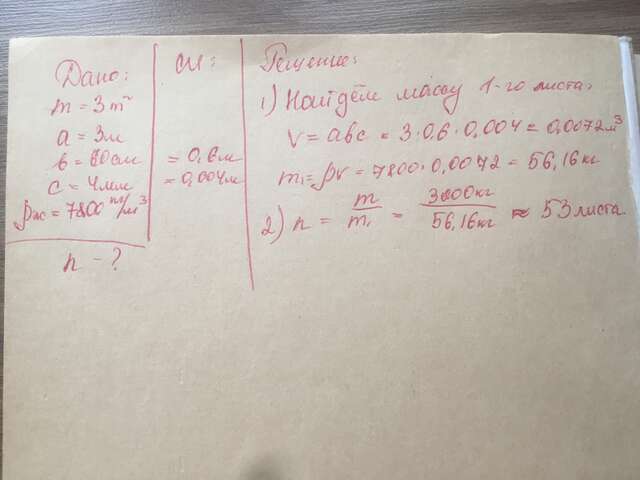 Дано:
m = 3т
a = 3м
b = 60см
c = 4мм
ρж = 7800 кг/м³
n - ?
СИ:
= 0,6м
= 0,004м
Решение:
1) Найдём массу 1-го листа:
V = abc = 3·0,6·0,004 = 0,0072м³
m₁ = ρV = 7800·0,0072 = 56,16кг
2) n = m/m₁ = 3000кг/56,16кг ≈ 53 листа.